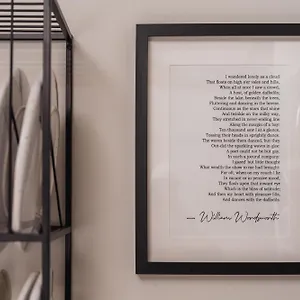 I wandered lonely as a cloud
That floats on high o'er vales and hills,
When all at once I saw a crowd,
A host, of golden daffodils;
Beside the lake, beneath the trees,
Fluttering and dancing in the breeze.
Continuous as the stars that shine
And twinkle on the milky way,
They stretched in never-ending line
Along the margin of a bay:
Ten thousand saw I at a glance,
Tossing their heads in sprightly dance.
The waves beside them danced; but they
Out-did the sparkling waves in glee:
A poet could not but be gay,
In such a jocund company:
I gazed—and gazed—but little thought
What wealth the show to me had brought:
For oft, when on my couch I lie
In vacant or in pensive mood,
They flash upon that inward eye
Which is the bliss of solitude;
And then my heart with pleasure fills,
And dances with the daffodils.
— William Wordsworth